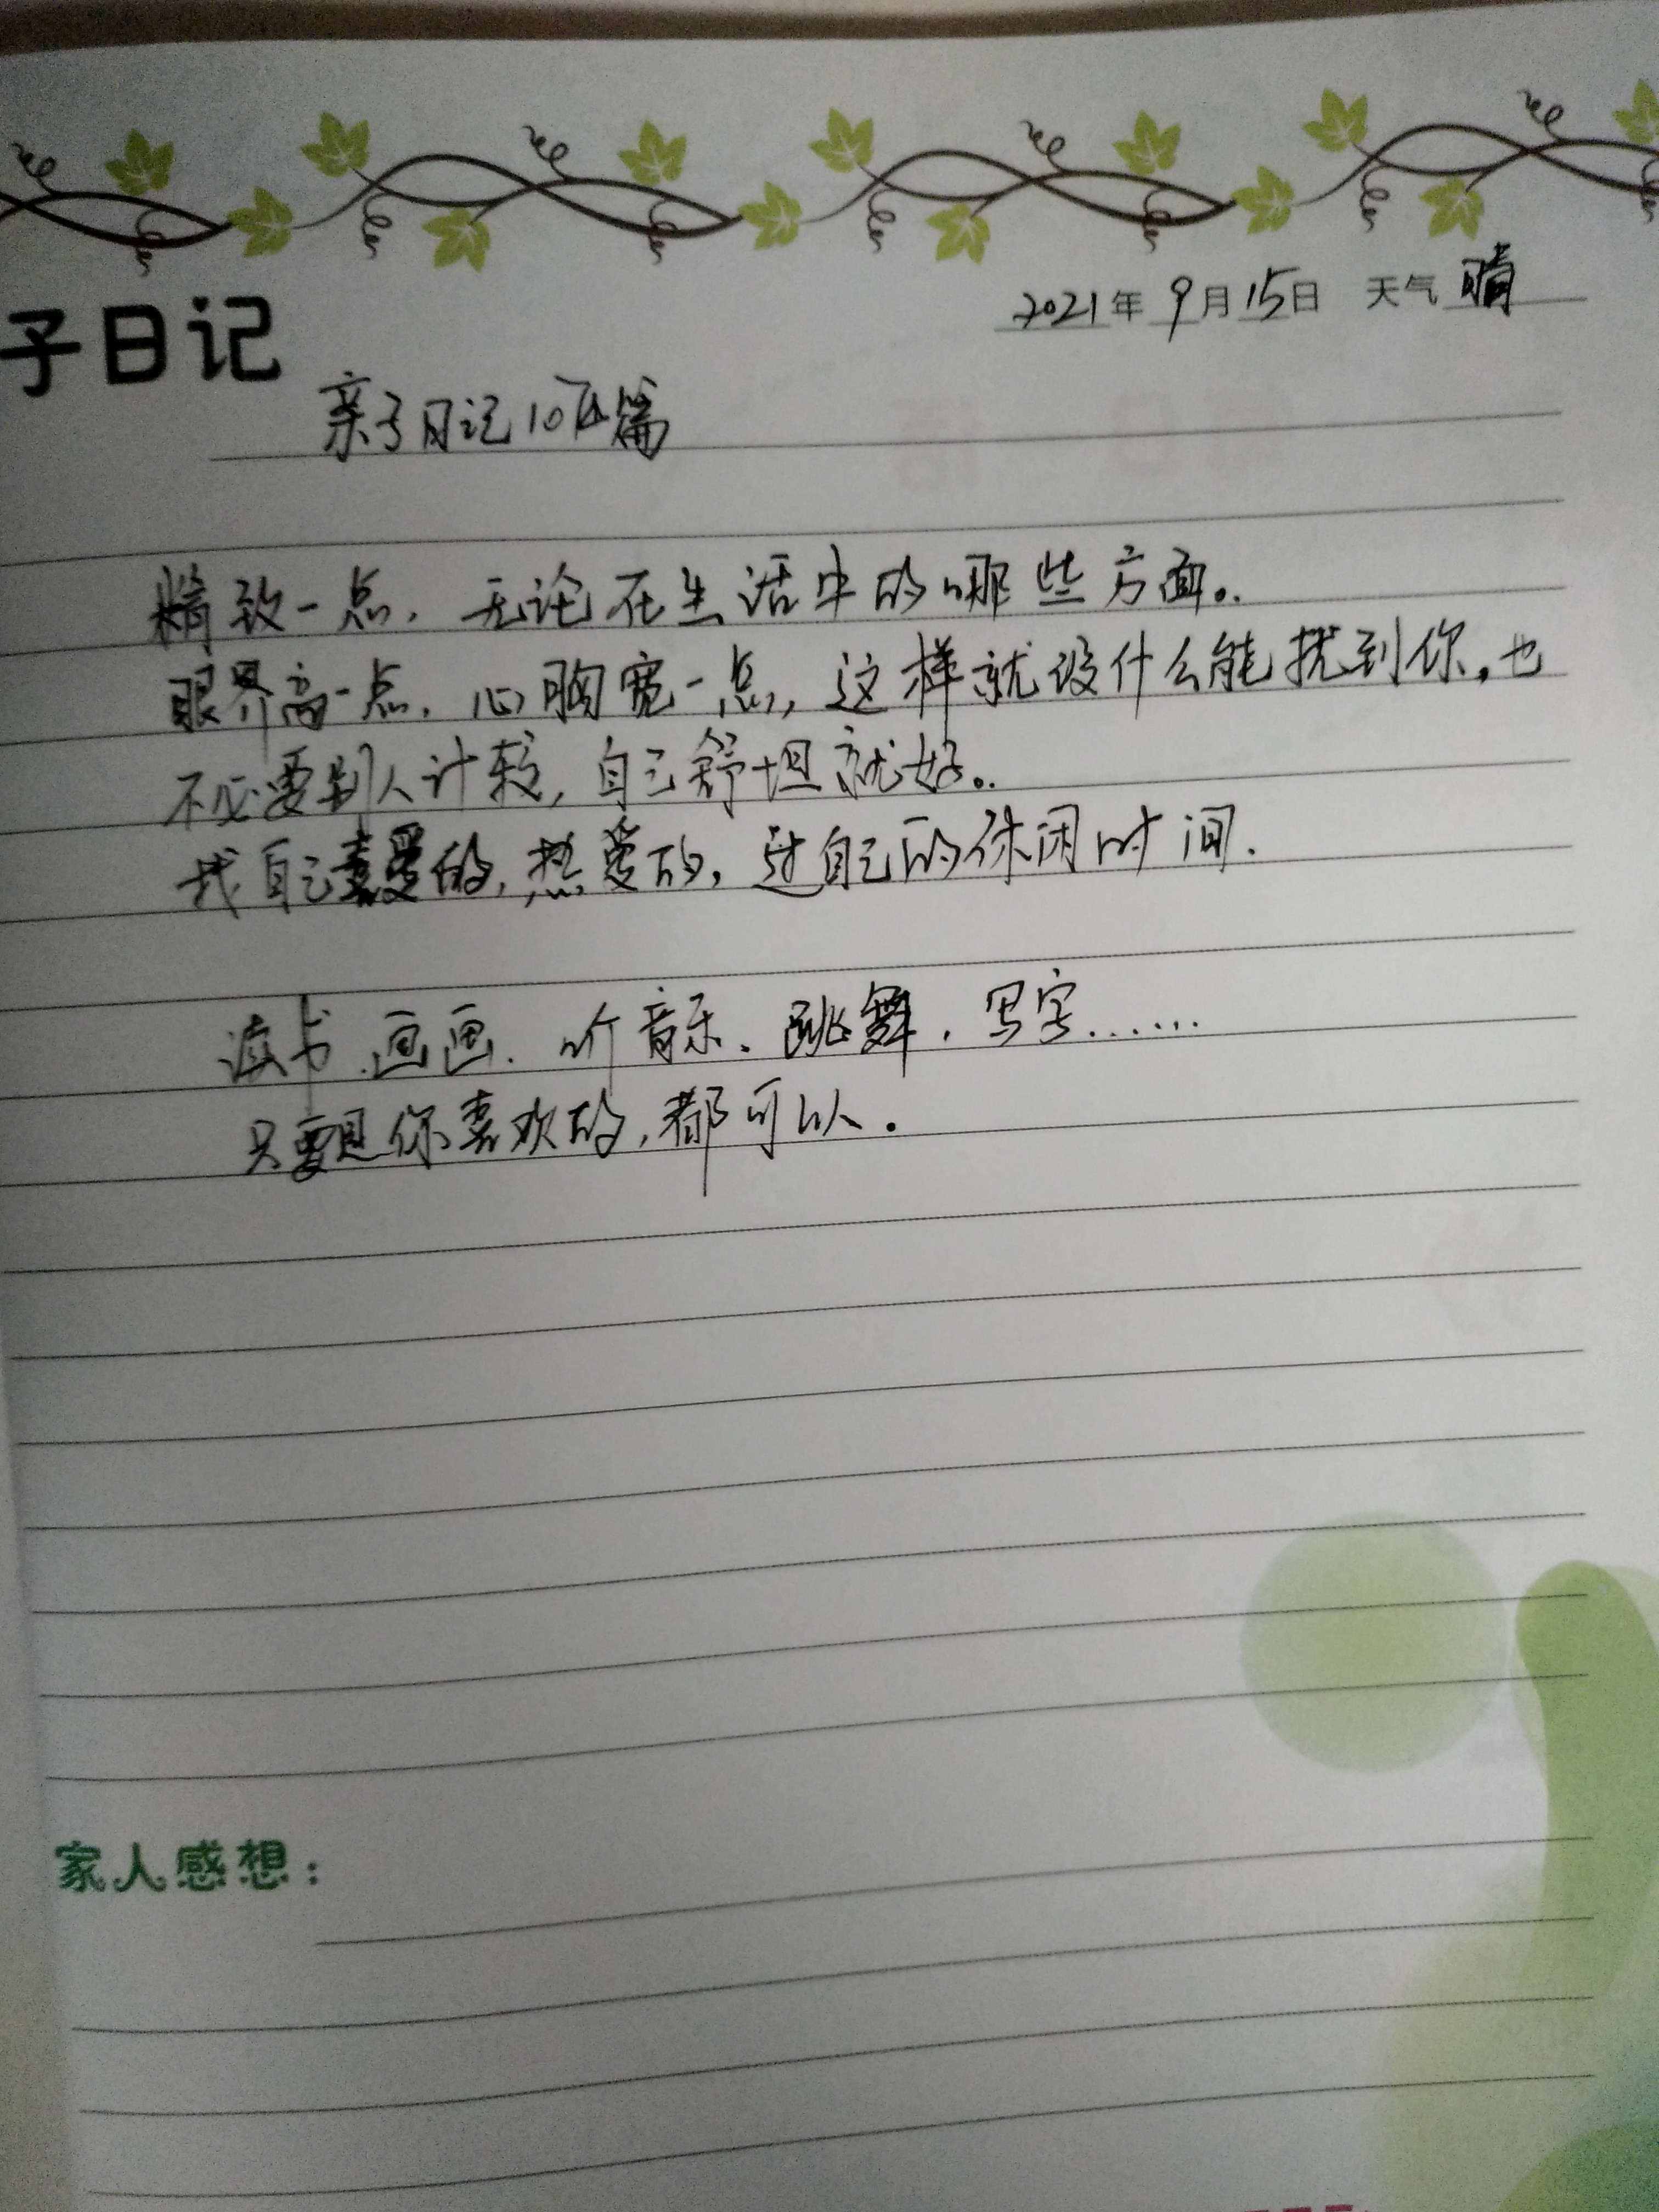 子日记
2021年 9月15日 天气 晴
亲子日记10篇
精致一点，无论在生活中的哪些方面。
眼界高一点，心胸宽一点，这样就没什么能扰到你，也
不必要别人计较，自己舒坦就好。
找自己喜爱的，热爱的，过自己的休闲时间.
读书.画画.听音乐、跳舞，写字......
只要是你喜欢的，都可以.
家人感想：